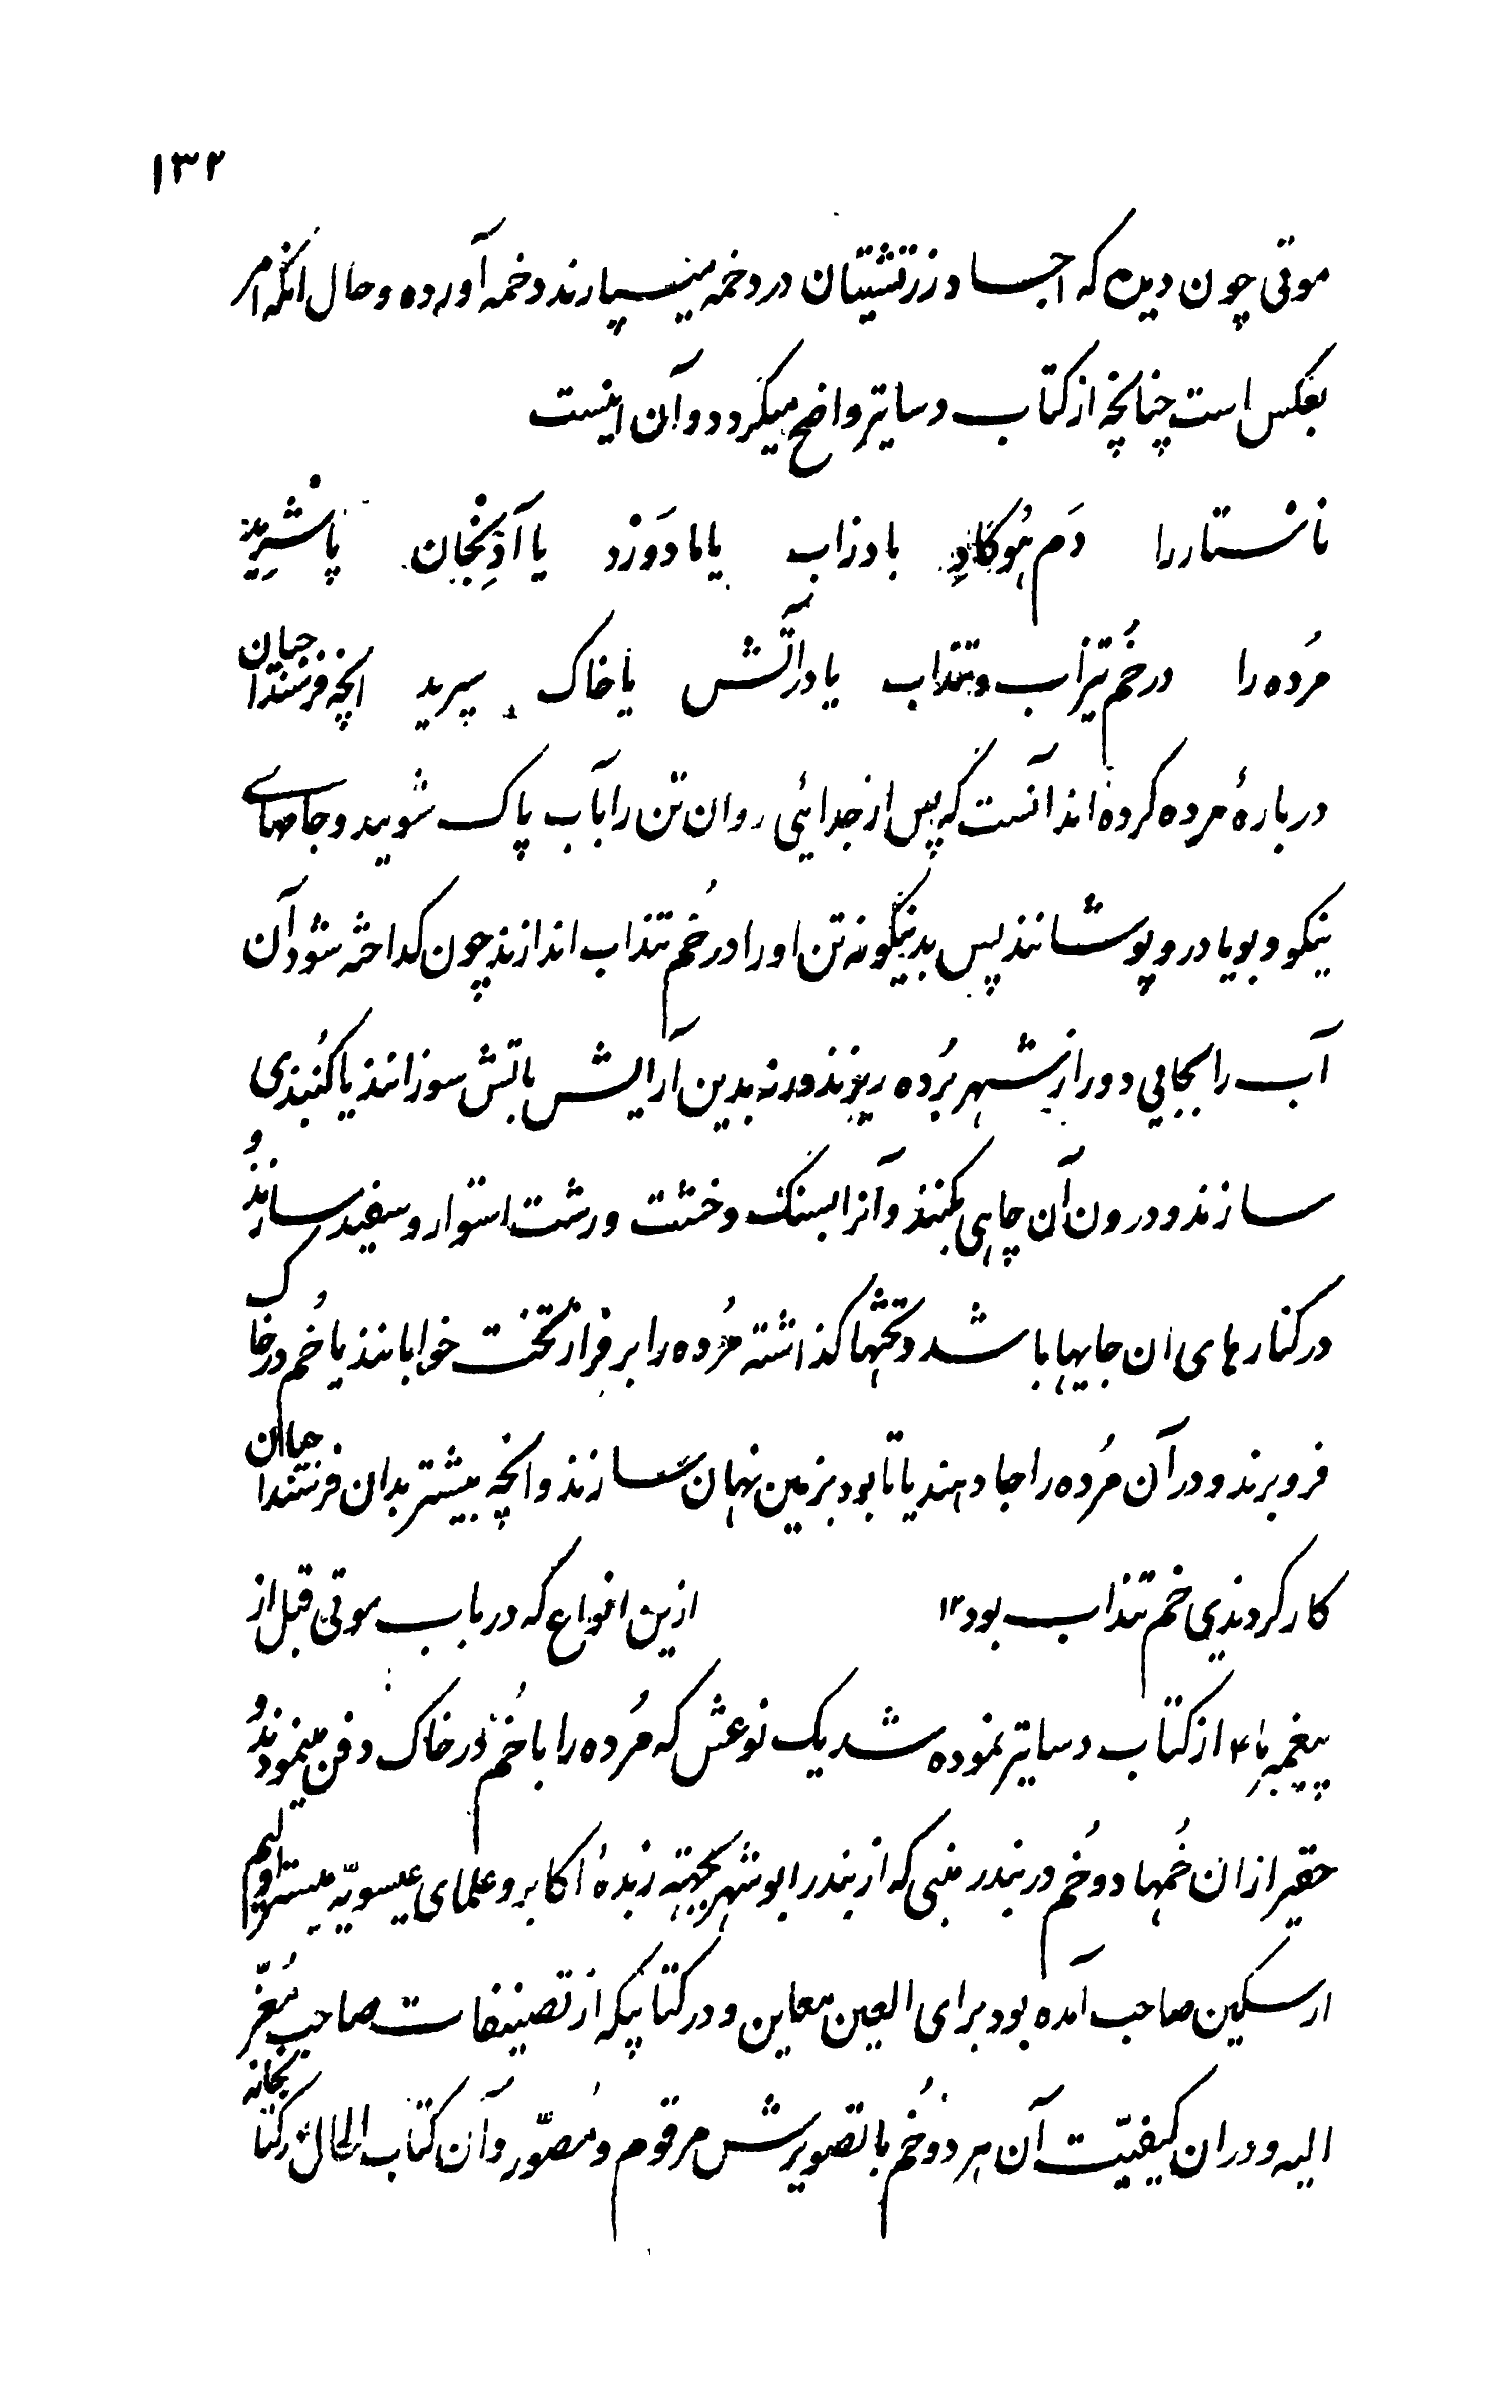 ۱۳۲
موتی چون دیده که اجساد زرتشتیان در دخمه میسپارند دخمه آورده و حال انکه امر
بعکس است چنانچه از کتاب دساتیر واضح میکردد و آن اینست
نانستاررا دَم هُوکادِ بادزاب یا مادَورد یا آذِنجان پاشَرِید
مرُده را در خُم تیزاب و تنداب یا در آتش یا خاک سپرید انچه فرسنداجیان
دربارهٔ مرده کرده اند آنست که پس از جدائی روان تن را بآب پاک شویید و جامهای
نیکو و بویا در و پوشانند پس بدینکونه تن او را در خُم تنداب اندازند چون کداخته شود آن
آب را بجایی دور از شهر بُرده ریزند ورنه بدین آرایش باتش سوزانند یا کُنبذی
سازند و درون آن چاهی بکنند و آنرا بسنک و خشت و رشت استوار و سفید سازند و
در کنارهای ان جایها باشد و تختها کذاشته مُرده را بر فراز تخت خوابانند یا خُم در خاک
فرو برند و در آن مُرده را جا دهند یا تابود بزمین نهان سازند و انچه بیشتر بدان فرسنداجیان
کار کردندی خم تنداب بود ۱۲ ازین انواع که در باب موتی قبل از
پیغمبر ما ؑ از کتاب دساتیر نموده شد یک نوعش که مُرده را با خُم در خاک دفن مینمودند و
حقیر از ان خُمها دو خُم در بندر منبی که از بندر ابوشهر بجهته زبدهٔ اکابر و علمای عیسویّه میستر ولیم
ارسکین صاحب آمده بود برای العین معاین و در کتابیکه از تصنیفات صاحب مُعزّ
الیه و دران کیفیّت آن هر دو خُم با تصویرش مرقوم و مُصوّر و آن کتاب الحال در کتابخانه